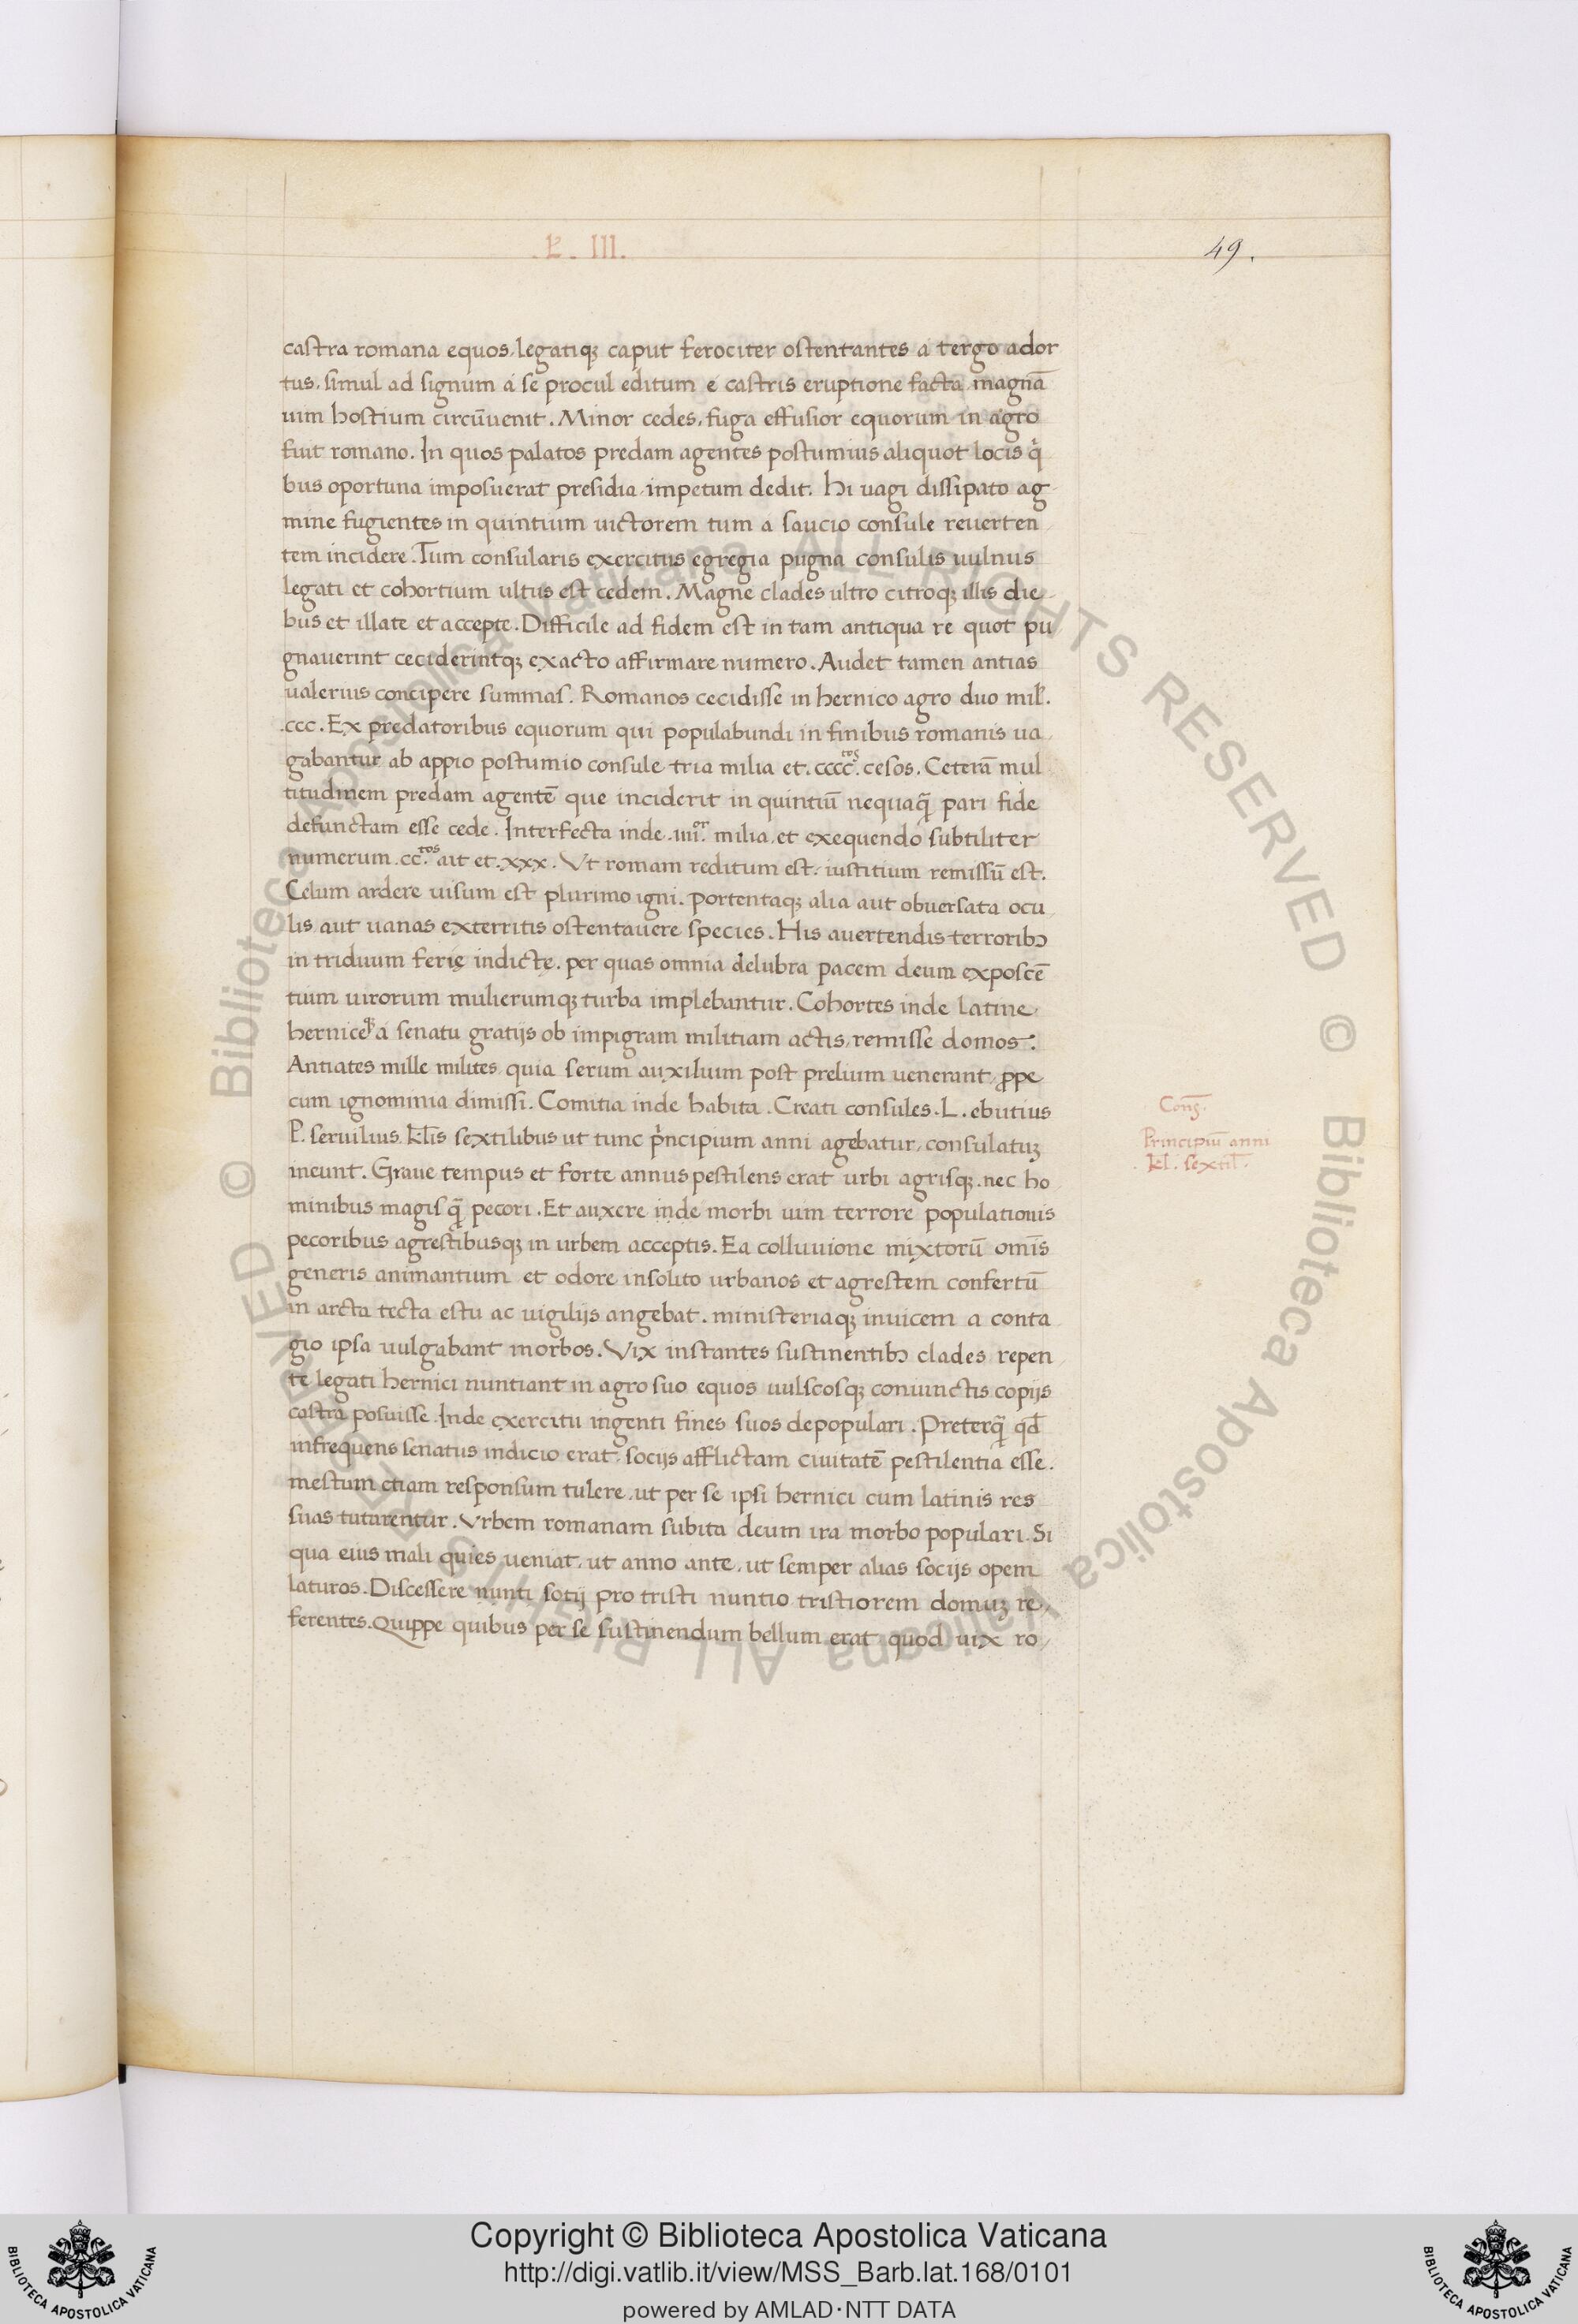 .L. III.
49.
castra romana equos, legatiqꝫ caput ferociter ostentantes a tergo ador
tus, simul ad signum a se procul editum e castris eruptione facta magnā
uim hostium circūuenit. Minor cedes, fuga effusior equorum in agro
fuit romano. In quos palatos predam agentes postumius aliquot locis qͥ
bus oportuna imposuerat presidia, impetum dedit. Hi uagi dissipato ag
mine fugientes in quintium uictorem tum a saucio consule reuerten
tem incidere. Tum consularis exercitus egregia pugna consulis uulnus
legati et cohortium ultus est cedem. Magne clades ultro citroqꝫ illis die
bus et illate et accepte. Difficile ad fidem est in tam antiqua re quot pu
gnauerint ceciderintqꝫ exacto affirmare numero. Audet tamen antias
ualerius concipere summas. Romanos cecidisse in hernico agro duo mil̄.
.ccc. Ex predatoribus equorum qui populabundi in finibus romanis ua
gabantur ab appio postumio consule tria milia et .cccc.tos cesos. Ceterā mul
titudinem predam agentē que inciderit in quintiū nequaq̄ pari fide
defunctam esse cede. Interfecta inde .iiii.or milia, et exequendo subtiliter
numerum .cc.tos ait et .xxx. Vt romam reditum est, iustitium remissū est.
Celum ardere uisum est plurimo igni. portentaqꝫ alia aut obuersata ocu
lis aut uanas exterritis ostentauere species. His auertendis terroribꝰ
in triduum ferię indictę. per quas omnia delubra pacem deum exposcē
tium uirorum mulierumqꝫ turba implebantur. Cohortes inde latine
herniceqꝫ a senatu gratijs ob impigram militiam actis, remisse domos.
Antiates mille milites, quia serum auxilium post prelium uenerant, ꝓpe
cum ignominia dimissi. Comitia inde habita. Creati consules .L. ebutius
P. seruilius, kl̄is sextilibus ut tunc pͥncipium anni agebatur, consulatuꝫ
ineunt. Graue tempus et forte annus pestilens erat urbi agrisqꝫ. nec ho
minibus magis q̄ pecori. Et auxere inde morbi uim terrore populationis
pecoribus agrestibusqꝫ in urbem acceptis. Ea colluuione mixtorū omīs
generis animantium et odore insolito urbanos et agrestem confertū
in arcta tecta estu ac uigilijs angebat. ministeriaqꝫ inuicem a conta
gio ipsa uulgabant morbos. Vix instantes sustinentibꝰ clades repen
te legati hernici nuntiant in agro suo equos uulscosqꝫ coniunctis copijs
castra posuisse. Inde exercitu ingenti fines suos depopulari. Preterq̄ qd̄
infrequens senatus indicio erat, socijs afflictam ciuitatē pestilentia esse.
mestum etiam responsum tulere, ut per se ipsi hernici cum latinis res
suas tutarentur. Vrbem romanam subita deum ira morbo populari. Si
qua eius mali quies ueniat, ut anno ante, ut semper alias socijs opem
laturos. Discessere nunti sotij pro tristi nuntio tristiorem domuꝫ re
ferentes. Quippe quibus per se sustinendum bellum erat quod uix ro
Cons̄.
Principiū anni
.kl̄. sextil̄.
© Biblioteca Apostolica Vaticana ALL RIGHTS RESERVED © Biblioteca Apostolica Vaticana ALL RIGHTS RESERVED
Copyright © Biblioteca Apostolica Vaticana
http://digi.vatlib.it/view/MSS_Barb.lat.168/0101
powered by AMLAD·NTT DATA
BIBLIOTECA APOSTOLICA VATICANA
BIBLIOTECA APOSTOLICA VATICANA